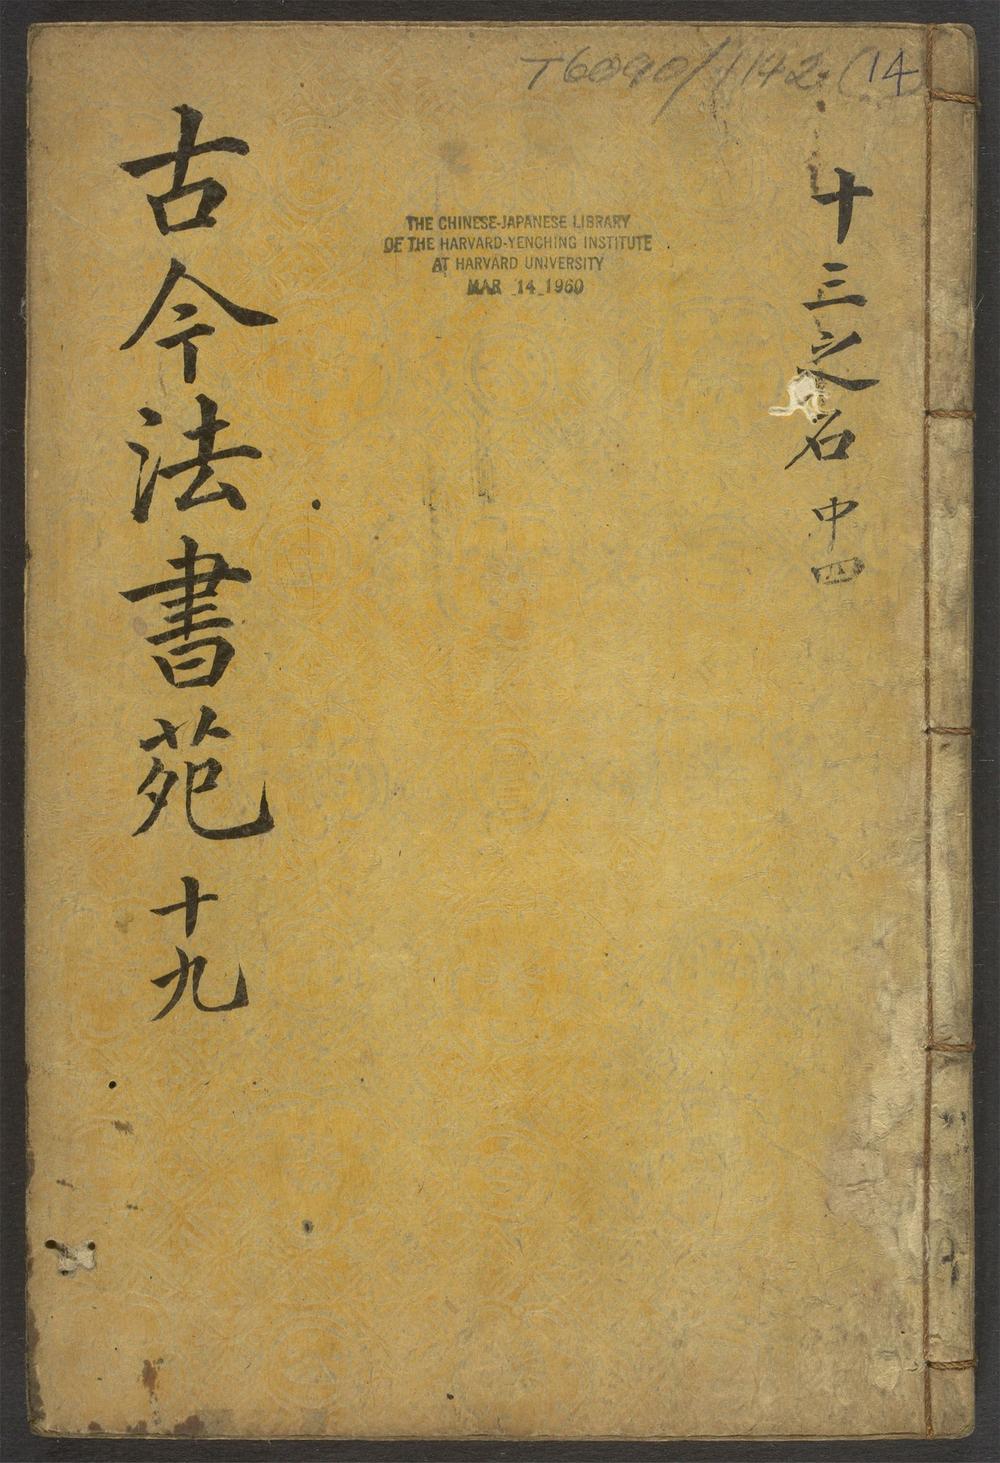 T6090/1142 (14
十三之石 中四
THE CHINESE-JAPANESE LIBRARY
OF THE HARVARD-YENCHING INSTITUTE
AT HARVARD UNIVERSITY
MAR 14 1960
古今法書苑 十九